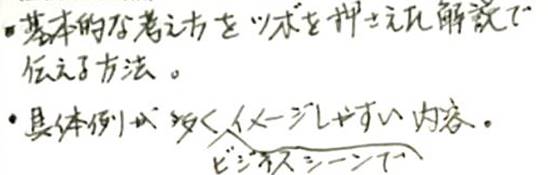 ・基本的な考え方をツボを押さえた解説で
伝える方法。
・具体例が多くイメージしやすい内容。
ビジネスシーンで